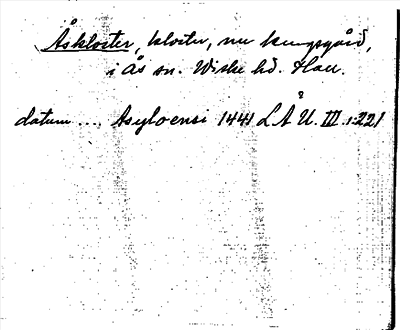 Åskloster, kloster, nu kungsgård,
i Ås sn. Wiske hd. Hall.
datum .... Asyloensi 1441 LÅU. III. 1:221